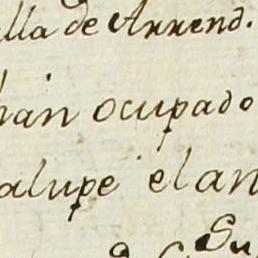 lla de Arrend.
han ocupado
alupe el an
Su